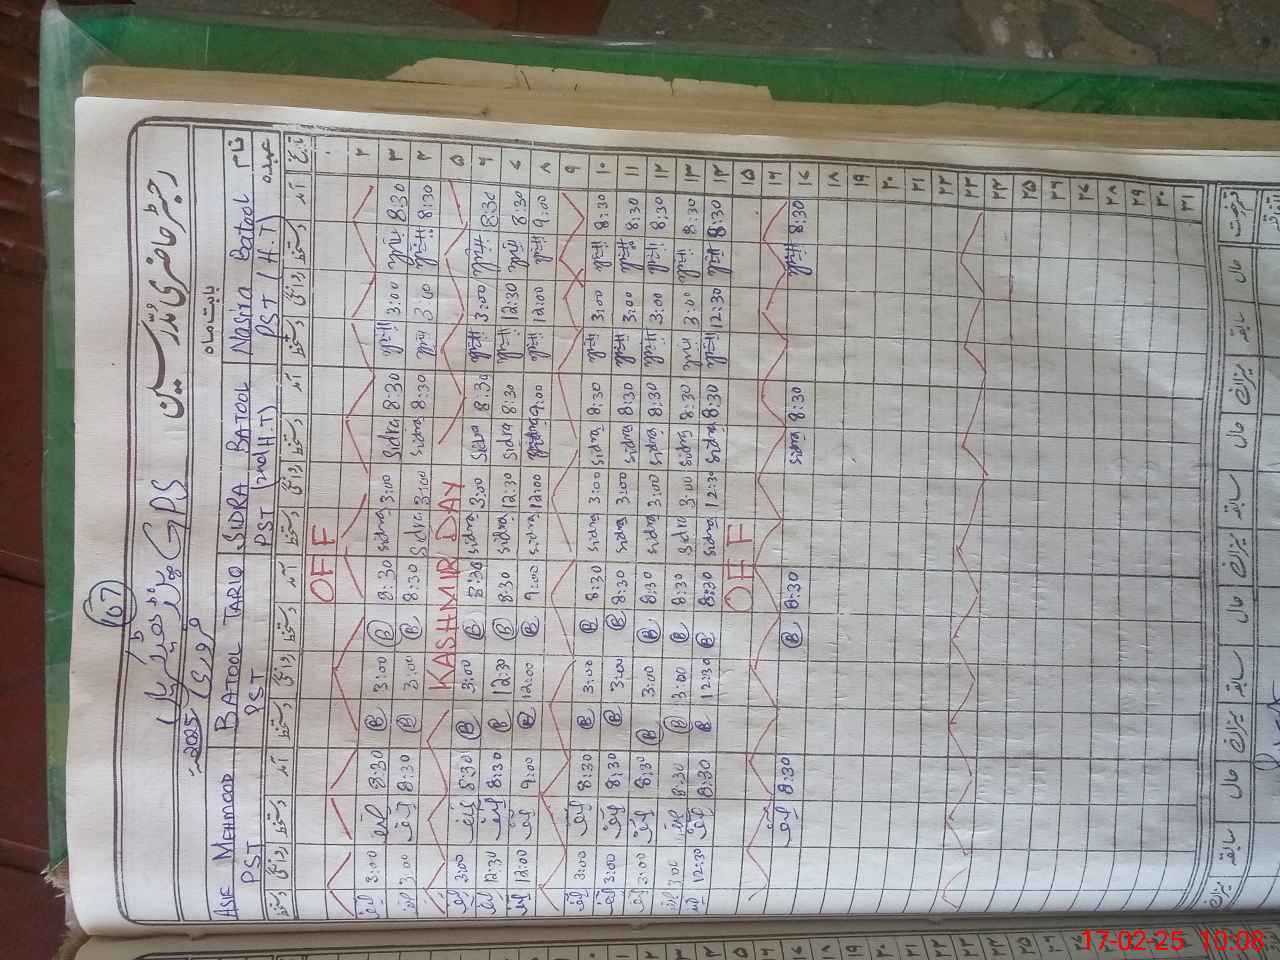 107
رجسٹر حاضری مدرسین
GPS
بابت ماہ فروری 2025ء
نام
عہدہ
Nasira Batool
PST (H.T)
SIDRA BATOOL
PST (2nd H.T)
BATOOL TARIQ
PST
ASIF MEHMOOD
PST
تاریخ آمد دستخط روانگی دستخط آمد دستخط روانگی دستخط آمد دستخط روانگی دستخط آمد دستخط روانگی دستخط
۱
۲ OFF
۳ 8:30 3:00 8:30 Sidra 3:00 Sidra 8:30 B 3:00 B 8:30 3:00
۴ 8:30 3:00 8:30 Sidra 3:00 Sidra 8:30 B 3:00 B 8:30 3:00
۵ KASHMIR DAY
۶ 8:30 3:00 8:30 Sidra 3:00 Sidra 8:30 B 3:00 B 8:30 3:00
۷ 8:30 12:30 8:30 Sidra 12:30 Sidra 8:30 B 12:30 B 8:30 12:30
۸ 9:00 12:00 9:00 12:00 Sidra 9:00 B 12:00 B 9:00 12:00
۹
۱۰ 8:30 3:00 8:30 Sidra 3:00 Sidra 8:30 B 3:00 B 8:30 3:00
۱۱ 8:30 3:00 8:30 Sidra 3:00 Sidra 8:30 B 3:00 B 8:30 3:00
۱۲ 8:30 3:00 8:30 Sidra 3:00 Sidra 8:30 B 3:00 B 8:30 3:00
۱۳ 8:30 3:00 8:30 Sidra 3:00 Sidra 8:30 B 3:00 B 8:30 3:00
۱۴ 8:30 12:30 8:30 Sidra 12:30 Sidra 8:30 B 12:30 B 8:30 12:30
۱۵ OFF
۱۶
۱۷ 8:30 8:30 Sidra 8:30 B 8:30
۱۸
۱۹
۲۰
۲۱
۲۲
۲۳
۲۴
۲۵
۲۶
۲۷
۲۸
۲۹
۳۰
۳۱
حال سابقہ میزان حال سابقہ میزان حال سابقہ میزان حال سابقہ میزان
17-02-25 10:08